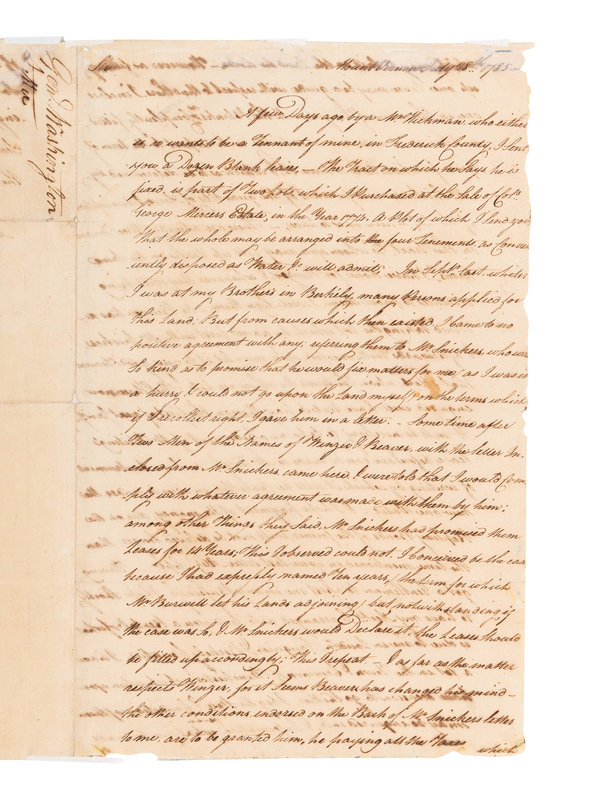 Genl. Washington
Letter
Sir Mount Vernon July 25th. 1785
A few Days ago by a Mr. Hickman, who either
is, or wants to be a Tennant of mine, in Frederick County, I sent
you a Dozen Blank leases. – The Tract on which he says he is
fixed, is part of Two Lots which I Purchased at the Sale of Colo.
George Mercers Estate, in the Year 1774. A Plat of which I send you
that the whole may be arranged into the four Tenements as Conven
iently disposed as Water &c. will admit. In Septr. last whilst
I was at my Brothers in Berkely, many Persons applied for
this Land. But from causes which then existed I came to no
positive agreement with any; referring them to Mr. Snickers who was
so kind as to promise that he would fix matters for me as I was in
a hurry, & could not go upon the Land myself, on the terms which
if I recollect right I gave him in a letter. – Sometime after
Two Men of the Names of Winzer & Beaver, with the letter In
closed from Mr. Snickers came here & were told that I would Com
ply with whatever agreement was made with them by him;
among other Things they Said, Mr. Snickers had promised them
Leases for 14 Years; This I observed could not, I conceived be the case
because I had expressly named Ten years, the term for which
Mr. Burwell let his Lands adjoining; but, notwithstanding, if
the case was so, & Mr. Snickers would Declare it, the Leases should
be filled up accordingly; This I repeat – & as far as the matter
respects Winzer, for it Seems Beaver has changed his mind –
the other conditions endorsed on the Back of Mr. Snickers letter
to me are to be granted him, he paying all the Taxes
which